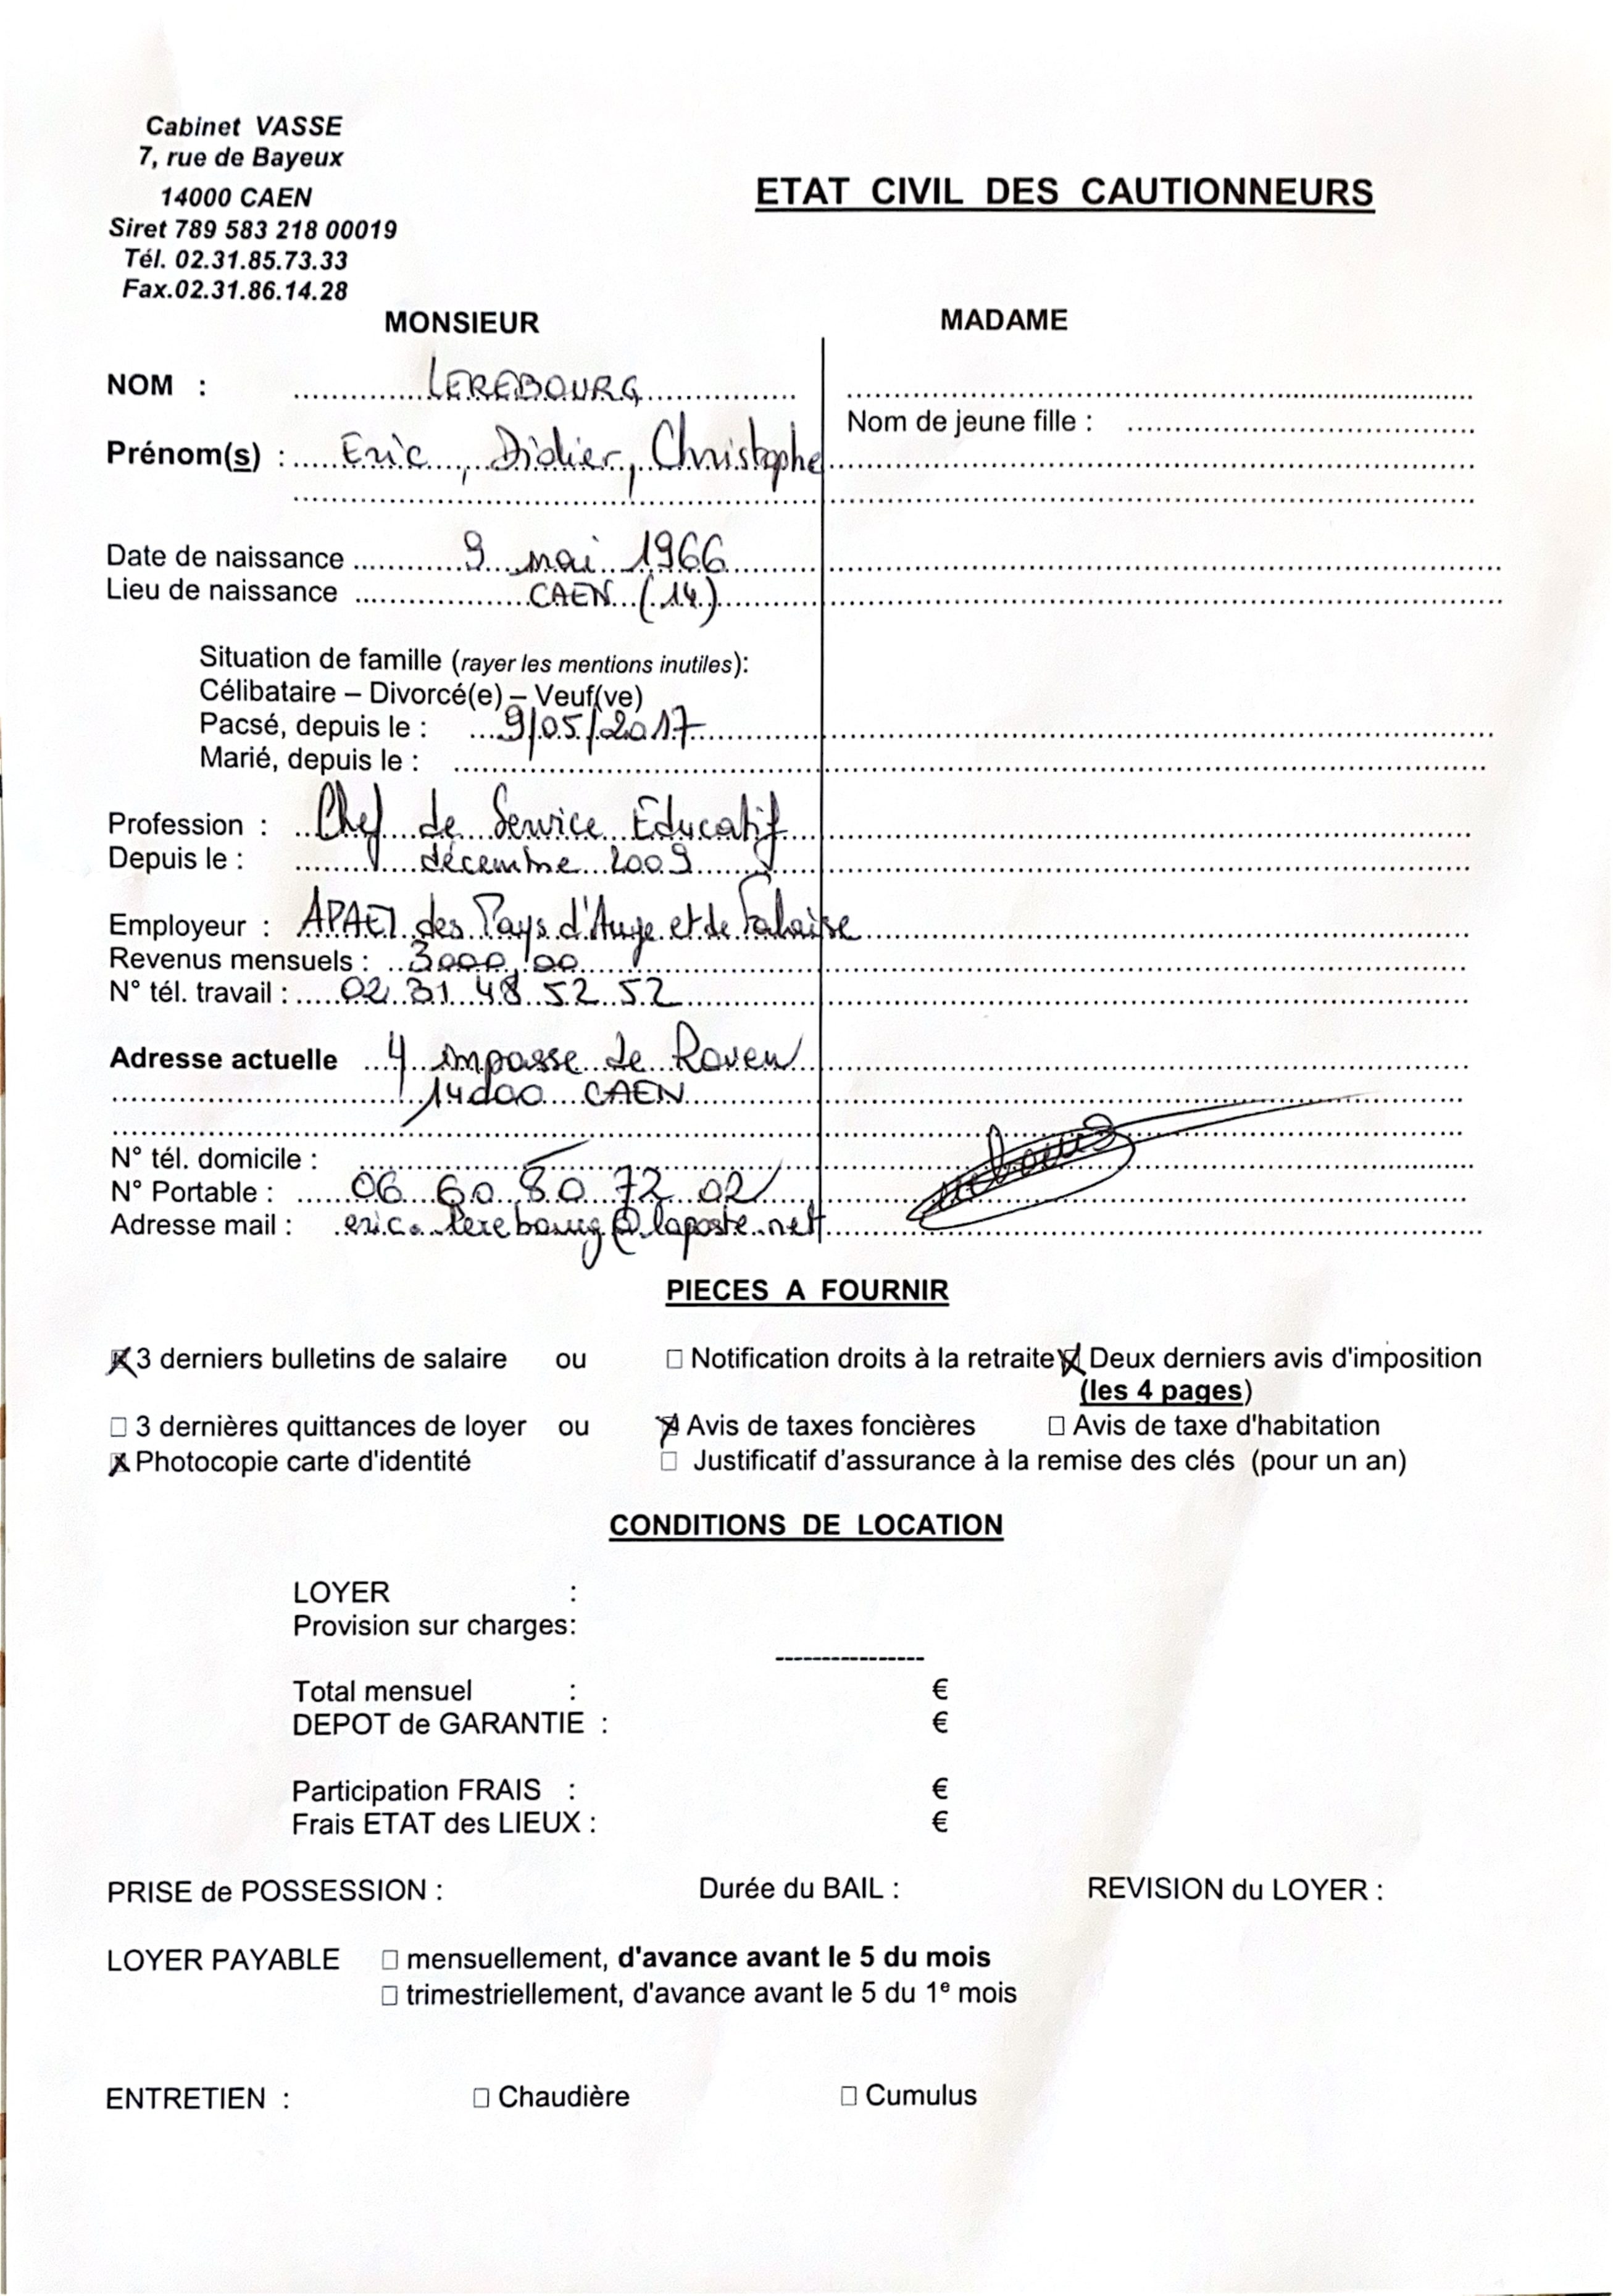 Cabinet VASSE
7, rue de Bayeux
14000 CAEN
Siret 789 583 218 00019
Tél. 02.31.85.73.33
Fax.02.31.86.14.28
ETAT CIVIL DES CAUTIONNEURS
MONSIEUR MADAME
NOM : LEREBOURG
Nom de jeune fille :
Prénom(s) : Eric, Didier, Christophe
Date de naissance 9 mai 1966
Lieu de naissance CAEN (14)
Situation de famille (rayer les mentions inutiles):
Célibataire – Divorcé(e) – Veuf(ve)
Pacsé, depuis le : 9/05/2017
Marié, depuis le :
Profession : Chef de Service Educatif
Depuis le : décembre 2009
Employeur : APAEI des Pays d'Auge et de Falaise
Revenus mensuels : 3000,00
N° tél. travail : 02 31 48 52 52
Adresse actuelle 4 impasse de Rouen
14000 CAEN
N° tél. domicile :
N° Portable : 06 60 80 72 02
Adresse mail : eric.lerebourg@laposte.net
PIECES A FOURNIR
3 derniers bulletins de salaire ou Notification droits à la retraite Deux derniers avis d'imposition
(les 4 pages)
3 dernières quittances de loyer ou Avis de taxes foncières Avis de taxe d'habitation
Photocopie carte d'identité Justificatif d'assurance à la remise des clés (pour un an)
CONDITIONS DE LOCATION
LOYER :
Provision sur charges:
----------------
Total mensuel : €
DEPOT de GARANTIE : €
Participation FRAIS : €
Frais ETAT des LIEUX : €
PRISE de POSSESSION : Durée du BAIL : REVISION du LOYER :
LOYER PAYABLE mensuellement, d'avance avant le 5 du mois
trimestriellement, d'avance avant le 5 du 1e mois
ENTRETIEN : Chaudière Cumulus